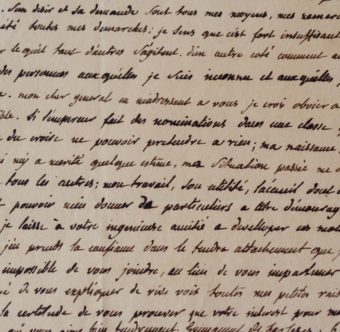 . Son desir et sa demande sont tous mes moyens, mes
ité toutes mes demarches; je sens que c'est fort insuffisant
lequel tant d'autres s'agitent. d'un autre coté comment
des personnes auxquelles je suis inconnu et auxquelles,
. mon cher general en m'adressant a vous je crois obvier a
ible. Si l'empereur fait des nominations dans une classe,
du croise ne pouvoir pretendre a rien; ma naissance
ni m'y a merité quelque estime, ma situation passée me
tous les autres; mon travail, son utilité, l'accueil dont
pouvoir m'en donner de particuliers a titre
je laisse à votre ingenieuse amitié a developer ces
j'en prends la confiance dans le tendre attachement que
impossible de vous joindre, au lieu de vous importuner
é de vous expliquer de vive voix toutes mes petites
la certitude de vous prouver que votre interest pour